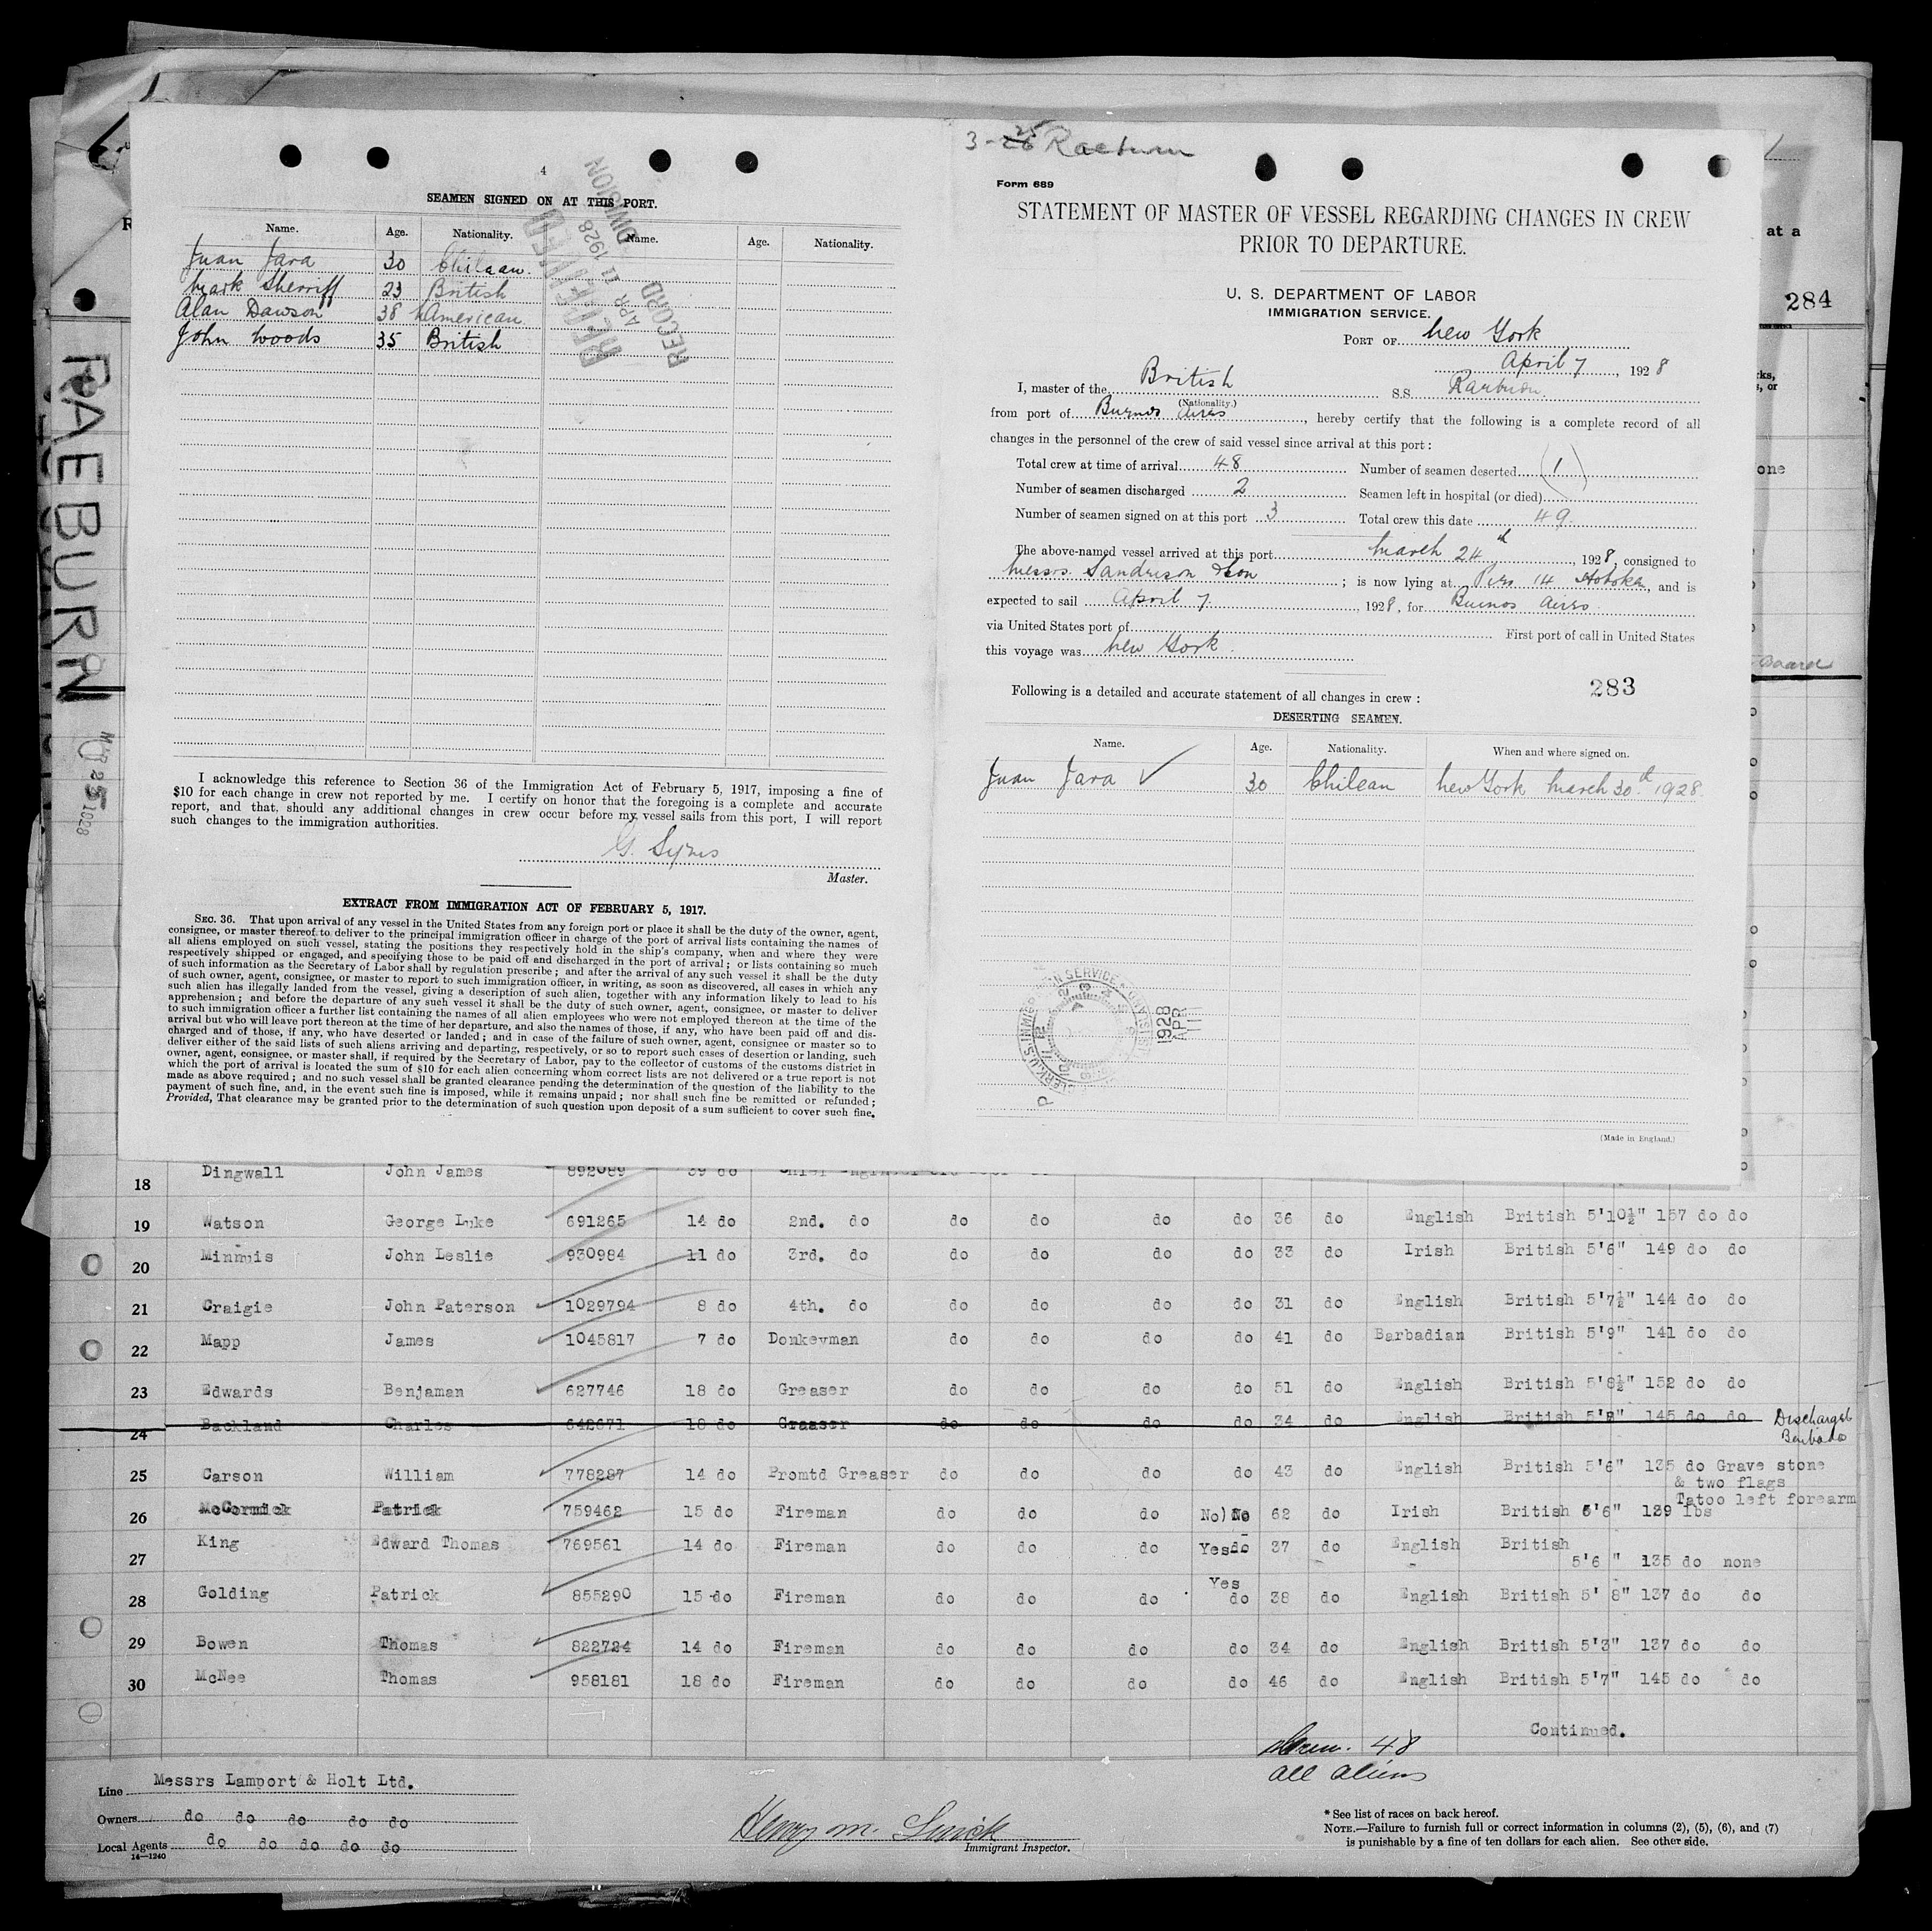 4
SEAMEN SIGNED ON AT THIS PORT.
Name. Age. Nationality. Name. Age. Nationality.
Juan Jara 30 Chilean.
Mark Sherriff 23 British
Alan Dawson 38 American
John Woods 35 British
RECEIVED
APR 11 1928
RECORD DIVISION
I acknowledge this reference to Section 36 of the Immigration Act of February 5, 1917, imposing a fine of
$10 for each change in crew not reported by me. I certify on honor that the foregoing is a complete and accurate
report, and that, should any additional changes in crew occur before my vessel sails from this port, I will report
such changes to the immigration authorities.
G. Symes
Master.
EXTRACT FROM IMMIGRATION ACT OF FEBRUARY 5, 1917.
SEC. 36. That upon arrival of any vessel in the United States from any foreign port or place it shall be the duty of the owner, agent,
consignee, or master thereof to deliver to the principal immigration officer in charge of the port of arrival lists containing the names of
all aliens employed on such vessel, stating the positions they respectively hold in the ship's company, when and where they were
respectively shipped or engaged, and specifying those to be paid off and discharged in the port of arrival; or lists containing so much
of such information as the Secretary of Labor shall by regulation prescribe; and after the arrival of any such vessel it shall be the duty
of such owner, agent, consignee, or master to report to such immigration officer, in writing, as soon as discovered, all cases in which any
such alien has illegally landed from the vessel, giving a description of such alien, together with any information likely to lead to his
apprehension; and before the departure of any such vessel it shall be the duty of such owner, agent, consignee, or master to deliver
to such immigration officer a further list containing the names of all alien employees who were not employed thereon at the time of the
arrival but who will leave port thereon at the time of her departure, and also the names of those, if any, who have been paid off and dis-
charged and of those, if any, who have deserted or landed; and in case of the failure of such owner, agent, consignee or master so to
deliver either of the said lists of such aliens arriving and departing, respectively, or so to report such cases of desertion or landing, such
owner, agent, consignee, or master shall, if required by the Secretary of Labor, pay to the collector of customs of the customs district in
which the port of arrival is located the sum of $10 for each alien concerning whom correct lists are not delivered or a true report is not
made as above required; and no such vessel shall be granted clearance pending the determination of the question of the liability to the
payment of such fine, and, in the event such fine is imposed, while it remains unpaid; nor shall such fine be remitted or refunded;
Provided, That clearance may be granted prior to the determination of such question upon deposit of a sum sufficient to cover such fine.
3-25 Raeburn
Form 689
STATEMENT OF MASTER OF VESSEL REGARDING CHANGES IN CREW
PRIOR TO DEPARTURE.
U. S. DEPARTMENT OF LABOR
IMMIGRATION SERVICE.
PORT OF New York
April 7, 1928
I, master of the British S.S. Raeburn
(Nationality.)
from port of Buenos Aires, hereby certify that the following is a complete record of all
changes in the personnel of the crew of said vessel since arrival at this port:
Total crew at time of arrival 48 Number of seamen deserted (1)
Number of seamen discharged 2 Seamen left in hospital (or died)
Number of seamen signed on at this port 3 Total crew this date 49.
The above-named vessel arrived at this port March 24th, 1928, consigned to
Messrs Sandrison & Son; is now lying at Pier 14 Hoboken, and is
expected to sail April 7, 1928, for Buenos Aires
via United States port of First port of call in United States
this voyage was New York
Following is a detailed and accurate statement of all changes in crew:
283
DESERTING SEAMEN.
Name. Age. Nationality. When and where signed on.
Juan Jara ✓ 30 Chilean New York March 30th 1928.
1928
APR
11
(Made in England.)
at a
284
one
RAEBURN
MAR 25 1928
18 Dingwall John James 892089 39 do
19 Watson George Luke 691265 14 do 2nd. do do do do do 36 do English British 5'10½" 157 do do
20 Minnuis John Leslie 930984 11 do 3rd. do do do do do 33 do Irish British 5'6" 149 do do
21 Craigie John Paterson 1029794 8 do 4th. do do do do do 31 do English British 5'7½" 144 do do
22 Mapp James 1045817 7 do Donkeyman do do do do 41 do Barbadian British 5'9" 141 do do
23 Edwards Benjaman 627746 18 do Greaser do do do do 51 do English British 5'8½" 152 do do
24 Backland Charles 642671 18 do Graaser do do do do 34 do English British 5'8" 145 do do Discharged
Barbado
25 Carson William 778287 14 do Promtd Greaser do do do do 43 do English British 5'6" 135 do Grave stone
& two flags
Tatoo left forearm
26 McCormick Patrick 759462 15 do Fireman do do do No) No 62 do Irish British 5'6" 129 lbs
27 King Edward Thomas 769561 14 do Fireman do do do Yes do 37 do English British
5'6" 135 do none
28 Golding Patrick 855290 15 do Fireman do do do Yes do 38 do English British 5' 8" 137 do do
29 Bowen Thomas 822724 14 do Fireman do do do do 34 do English British 5'3" 137 do do
30 McNee Thomas 958181 18 do Fireman do do do do 46 do English British 5'7" 145 do do
Continued.
Crew. 48
All aliens
Line Messrs Lamport & Holt Ltd.
Owners do do do do do
Local Agents do do do do do
14—1240
Henry M.
Immigrant Inspector.
* See list of races on back hereof.
NOTE.—Failure to furnish full or correct information in columns (2), (5), (6), and (7)
is punishable by a fine of ten dollars for each alien. See other side.